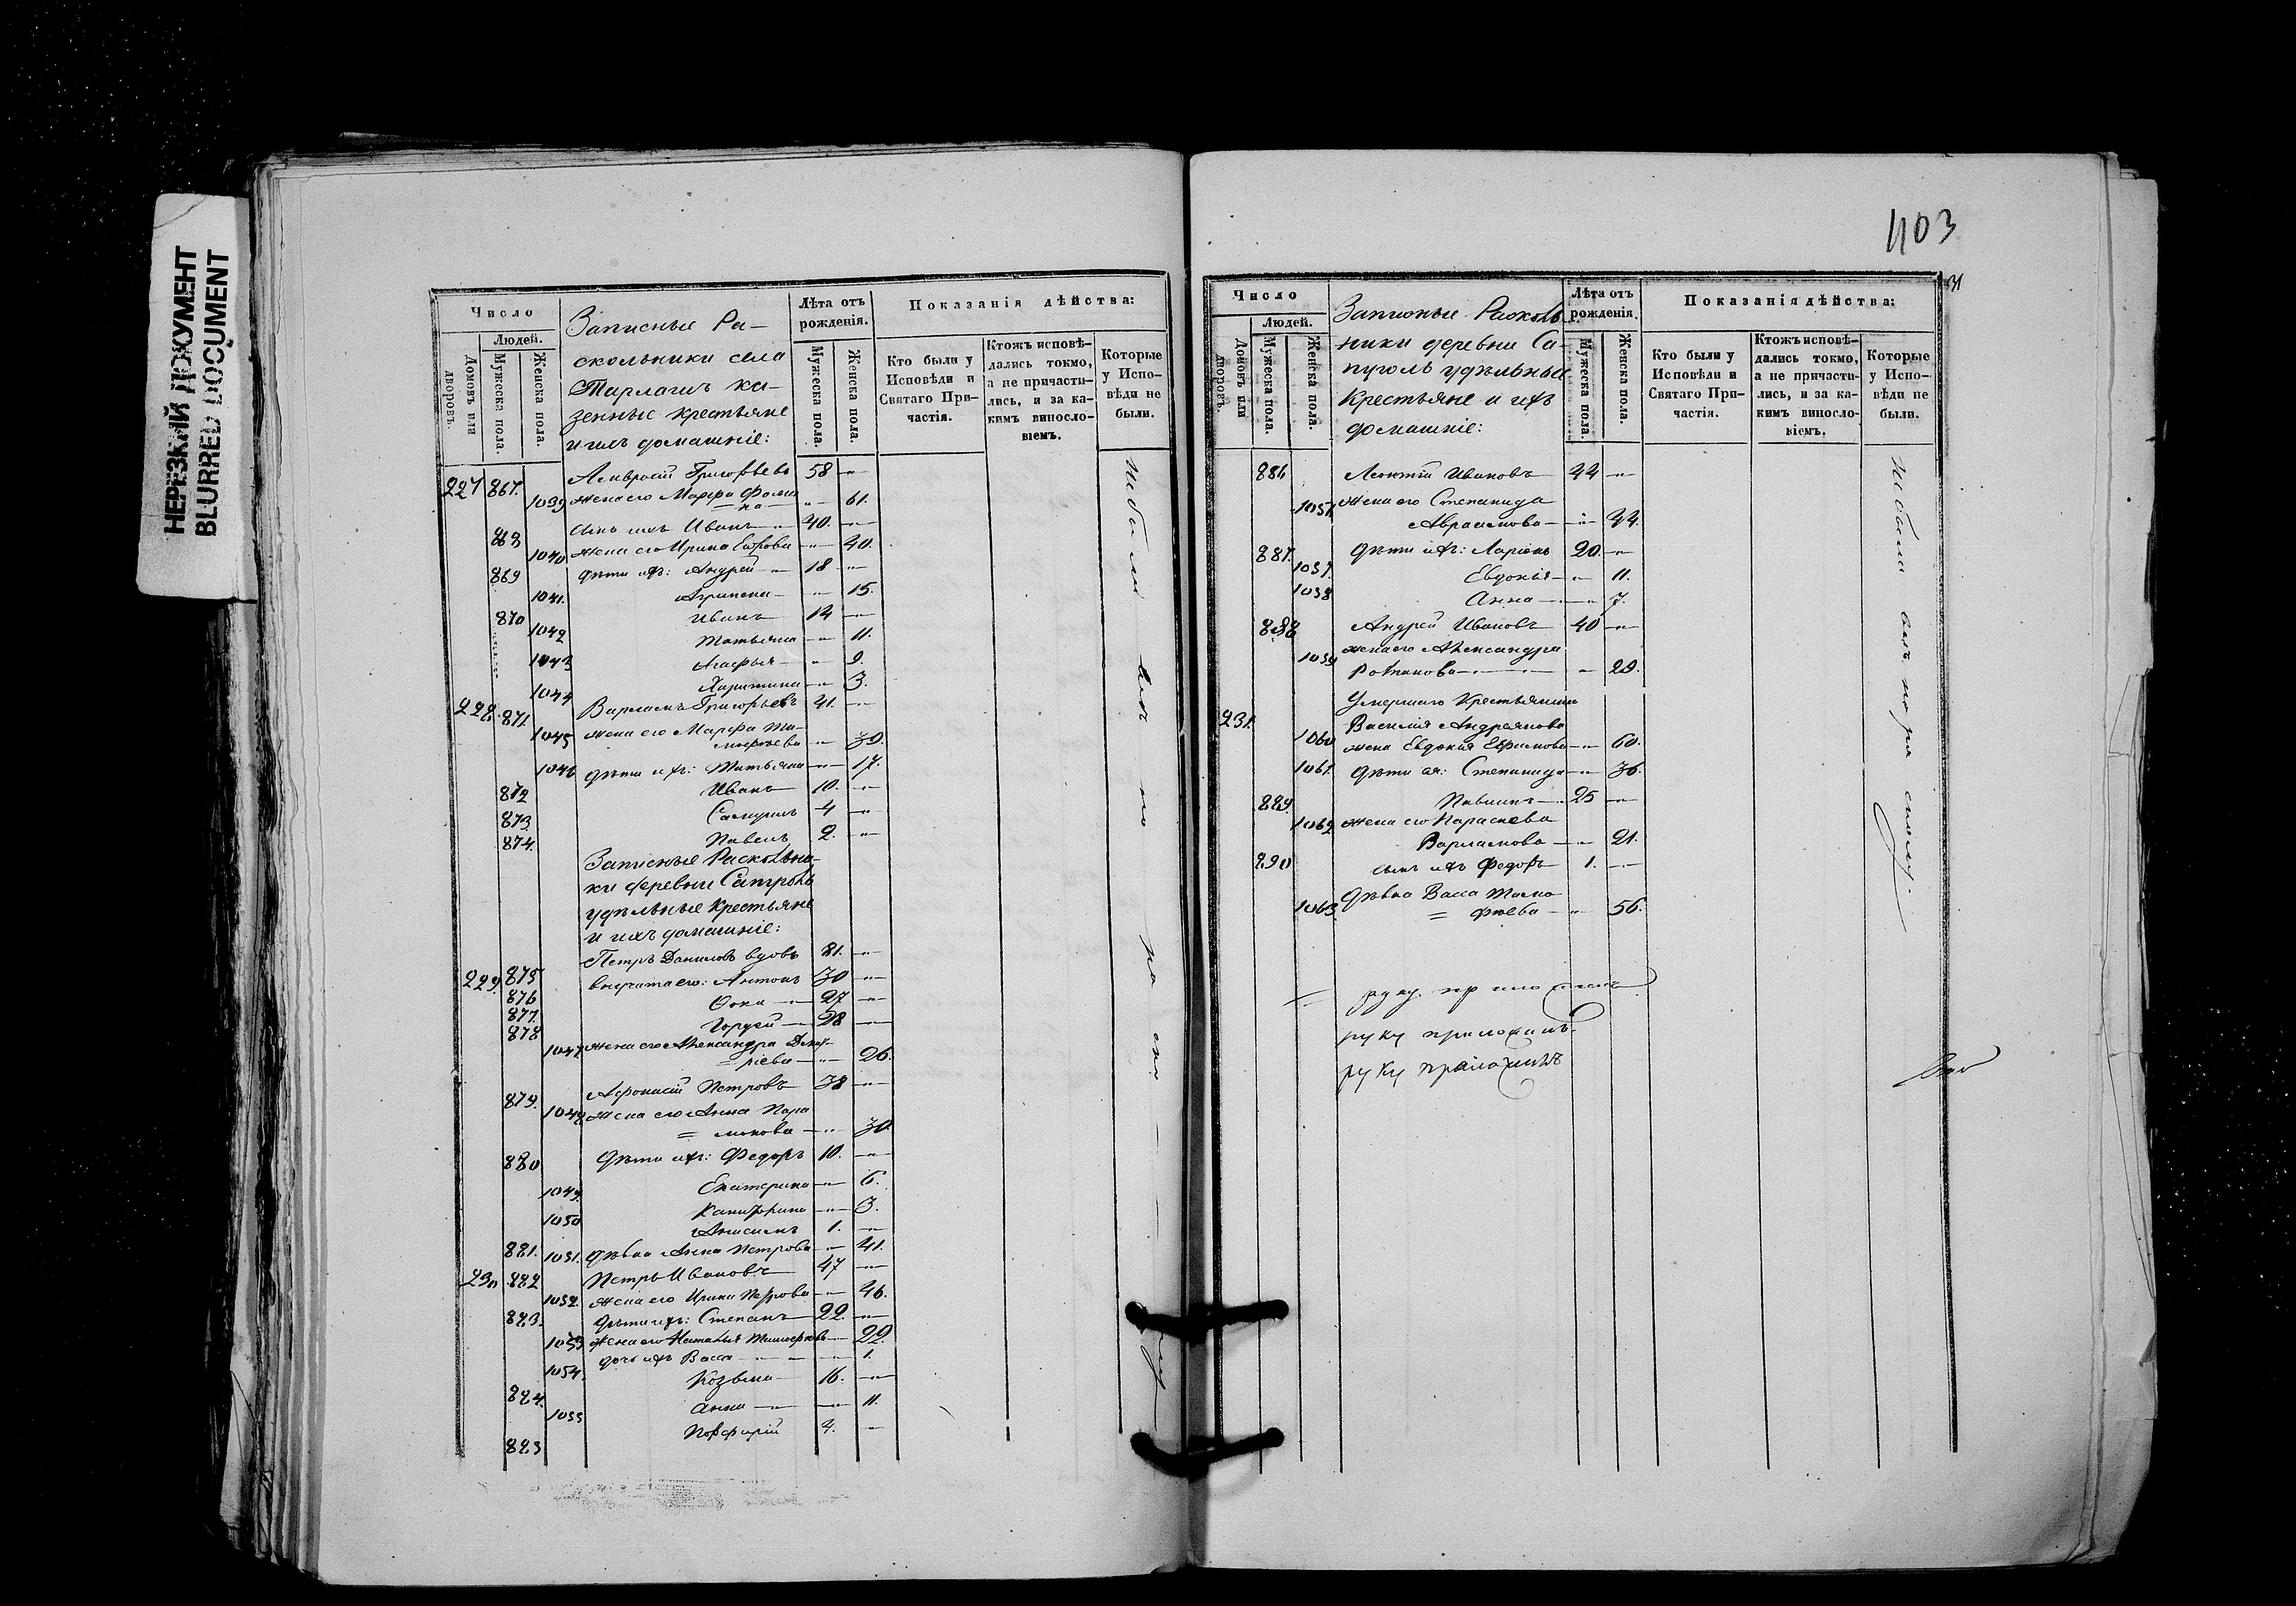 НЕРЕЗКИЙ ДОКУМЕНТ
BLURRED DOCUMENT
Число
Людей.
Домовъ или дворовъ.
Мужеска пола.
Женска пола.
Записные Ра-
скольники села
Тарлаши ка-
зенные крестьяне
и ихъ домашніе:
Лѣта отъ
рожденія.
Мужеска пола.
Женска пола.
Показанія дѣйства:
Кто были у
Исповѣди и
Святаго При-
частія.
Ктожъ исповѣ-
дались токмо,
а не причасти-
лись, и за ка-
кимъ винослο-
віемъ.
Которые
у Испо-
вѣди не
были.
227 867. Амвросій Григорьевъ 58 -"-
1039 жена его Марфа Фоми
на " 61.
868 сынъ ихъ Иванъ 40. -"-
1040 жена его Ирина -"- 40.
869 дѣти ихъ: Андрей 18 -"-
1041. -"- 15.
870 Иванъ 14 -"-
1042 Татьяна -"- 11.
1043 Агафья -"- 9.
1044 Харитина -"- 3.
228. 871. Варламъ Григорьевъ 41. -"-
1045 жена его Марфа Ти-
мофѣева -"- 39.
1046 дѣти ихъ: Татьяна -"- 17.
872 Иванъ 10. -"-
873. Самуилъ 4 -"-
874. Павелъ 2. -"-
Записные Раскольни-
ки деревни
удѣльные Крестьяне
и ихъ домашніе:
229. 875 Петръ Даниловъ вдовъ 81. -"-
876 внучата его: Антонъ 30 -"-
877. Ѳока 27 -"-
878 Гордей 28 -"-
1047. жена его Александра
26.
879. Афонасій Петровъ 38 -"-
1048 жена его Анна Пара
= монова -"- 30.
880 Дѣти ихъ: Федоръ 10. -"-
1049. Екатерина -"- 6.
1050 -"- 3.
881. Анисимъ 1. -"-
1051. Дѣвка Анна Петрова -"- 41.
230. 882 Петръ Ивановъ 47 -"-
1052. жена его Ирина Петрова -"- 46.
883. дѣти ихъ: Степанъ 22. -"-
1053 жена его Наталья -"- 22.
1054. дочь ихъ Васса -"- 1.
884. Козьма 16. -"-
1055 Анна -"- 11.
885 Порфирій 4. -"-
Не были
403
Число
Людей.
Домовъ или дворовъ.
Мужеска пола.
Женска пола.
Записные Расколь
ники деревни Са-
пуголь удѣльные
Крестьяне и ихъ
домашніе:
Лѣта отъ
рожденія.
Мужеска пола.
Женска пола.
Показанія дѣйства:
Кто были у
Исповѣди и
Святаго При-
частія.
Ктожъ исповѣ-
дались токмо,
а не причасти-
лись, и за ка-
кимъ винослο-
віемъ.
Которые
у Испо-
вѣди не
были.
886 Леонтій Ивановъ 44 -"-
жена его Степанида
Авраамова -"- 44.
887. Дѣти ихъ: Ларіонъ 20. -"-
1057. Евдокія -"- 11.
1058 Анна -"- 7.
888 Андрей Ивановъ 40 -"-
1059 жена его Александра
Романова -"- 29.
231. Умершаго Крестьянина
Василія Андреянова
1060 жена Евдокія Ефимова -"- 60.
1061. Дѣти ея: Степанида -"- 36.
889. 25 -"-
1062. жена его Параскева
Варламова -"- 21.
890 сынъ ихъ Федоръ 1. -"-
1063. Дѣвка Васса Тимо
= фѣева -"- 56.
Не были вси по расколу.
руку приложилъ
руку приложилъ
руку приложилъ